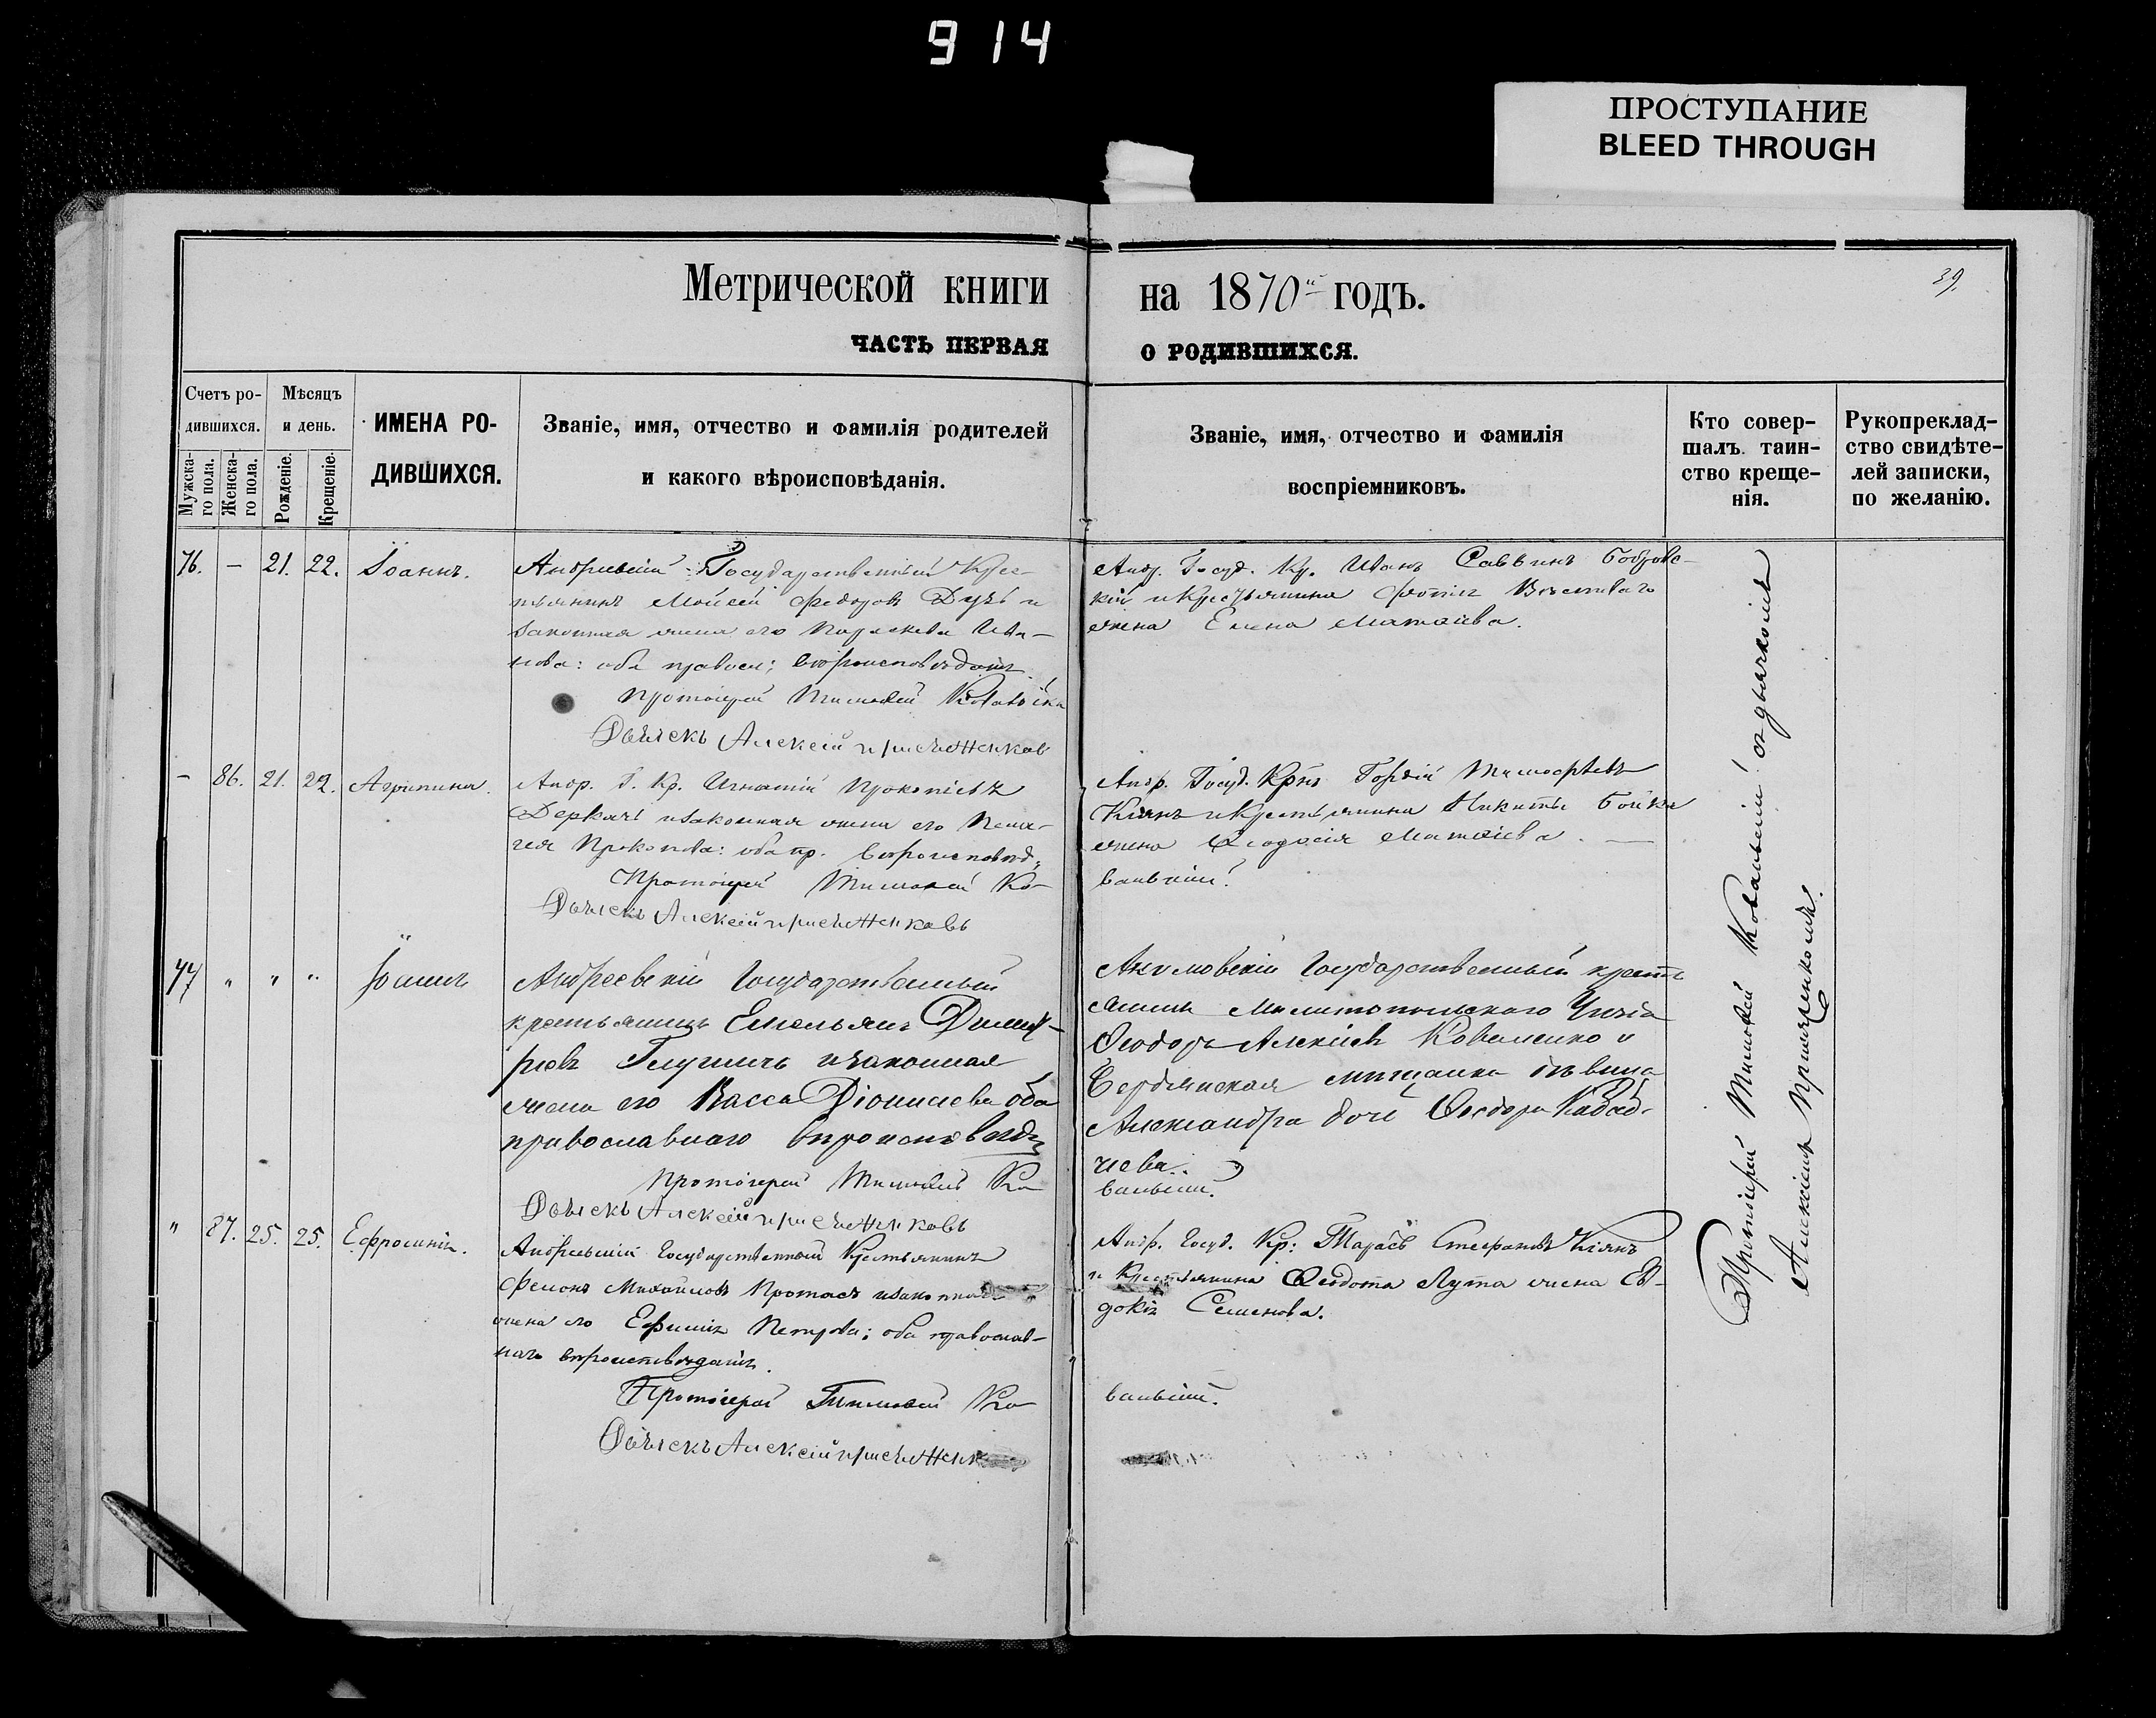 914
ПРОСТУПАНИЕ
BLEED THROUGH
Метрической книги на 1870й годъ.
39.
ЧАСТЬ ПЕРВАЯ О РОДИВШИХСЯ.
Счетъ ро-
дившихся.
Мужска-
го пола.
Женска-
го пола.
Мѣсяцъ
и день.
Рожденіе.
Крещеніе.
ИМЕНА РО-
ДИВШИХСЯ.
Званіе, имя, отчество и фамилія родителей
и какого вѣроисповѣданія.
Званіе, имя, отчество и фамилія
воспріемниковъ.
Кто совер-
шалъ таин-
ство креще-
нія.
Рукоприклад-
ство свидѣте-
лей записки,
по желанію.
76. — 21. 22. Іоаннъ.
Андреевскій Государственный Крес-
тьянинъ Моисей Федоровъ и
законная жена его Параскева Ива-
нова: оба правосл: вѣроисповѣданія.
Протоіерей Тимофей
Дьячекъ Алексѣй
Анд. Госуд. Кр. Иванъ Саввинъ Бобровс-
кій и Крестьянина Фотія
жена Елена Матѳіева.
— 86. 21. 22. Агрипина.
Андр. Г. Кр. Игнатій Прокопіевъ
Деркачъ и законная жена его Пела-
гея Прокопова: оба пр. вѣроисповѣд:
Протоіерей Тимофей Ко-
вальскій.
Дьячекъ Алексѣй
Андр. Госуд. Крнъ Гордій Тимофѣевъ
Кіянъ и Крестьянина Никиты Бойка
жена Ѳеодосія Матѳіева. —
77 " " " Іоаннъ
Андреевскій Государственный
крестьянинъ Емельянъ Димит-
ріевъ и законная
жена его Васса Діонисіева оба
православнаго вѣроисповѣд
Протоіерей Тимофей Ко-
вальскій.
Дьячекъ Алексѣй
Акимовскій Государственный кресть
янинъ Мелитопольскаго Уѣзда
Ѳеодоръ Алексѣевъ Коваленко и
Бердянская мѣщанка дѣвица
Александра дочь Ѳеодора
" 87. 25. 25. Ефросинія.
Андреевскій Государственный Крестьянинъ
Филонъ Михайловъ Протасъ и законная
жена его Ефимія Петрова; оба православ-
наго вѣроисповѣданія.
Протоіерей Тимофей Ко-
вальскій.
Дьячекъ Алексѣй
Андр. Госуд. Кр: Тарасъ Стефановъ Кіянъ
и Крестьянина Ѳеодота Лута жена Ев-
докія Семенова.
Протоіерей Тимофей Ковальскій съ дьячкомъ